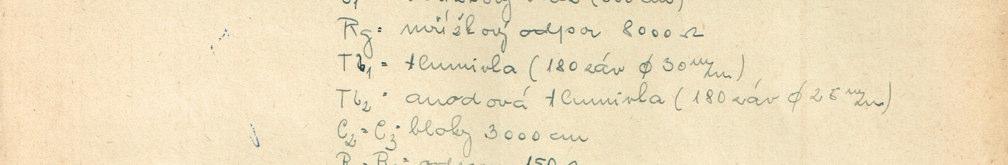 Rg = mřížkový odpor 8000 Ω
Tl₁ = tlumivka (180 záv ϕ 30 m/m)
Tl₂ = anodová tlumivka (180 záv ϕ 25 m/m)
C₂ = C₃ = bloky 3000 cm
odpor 150 Ω